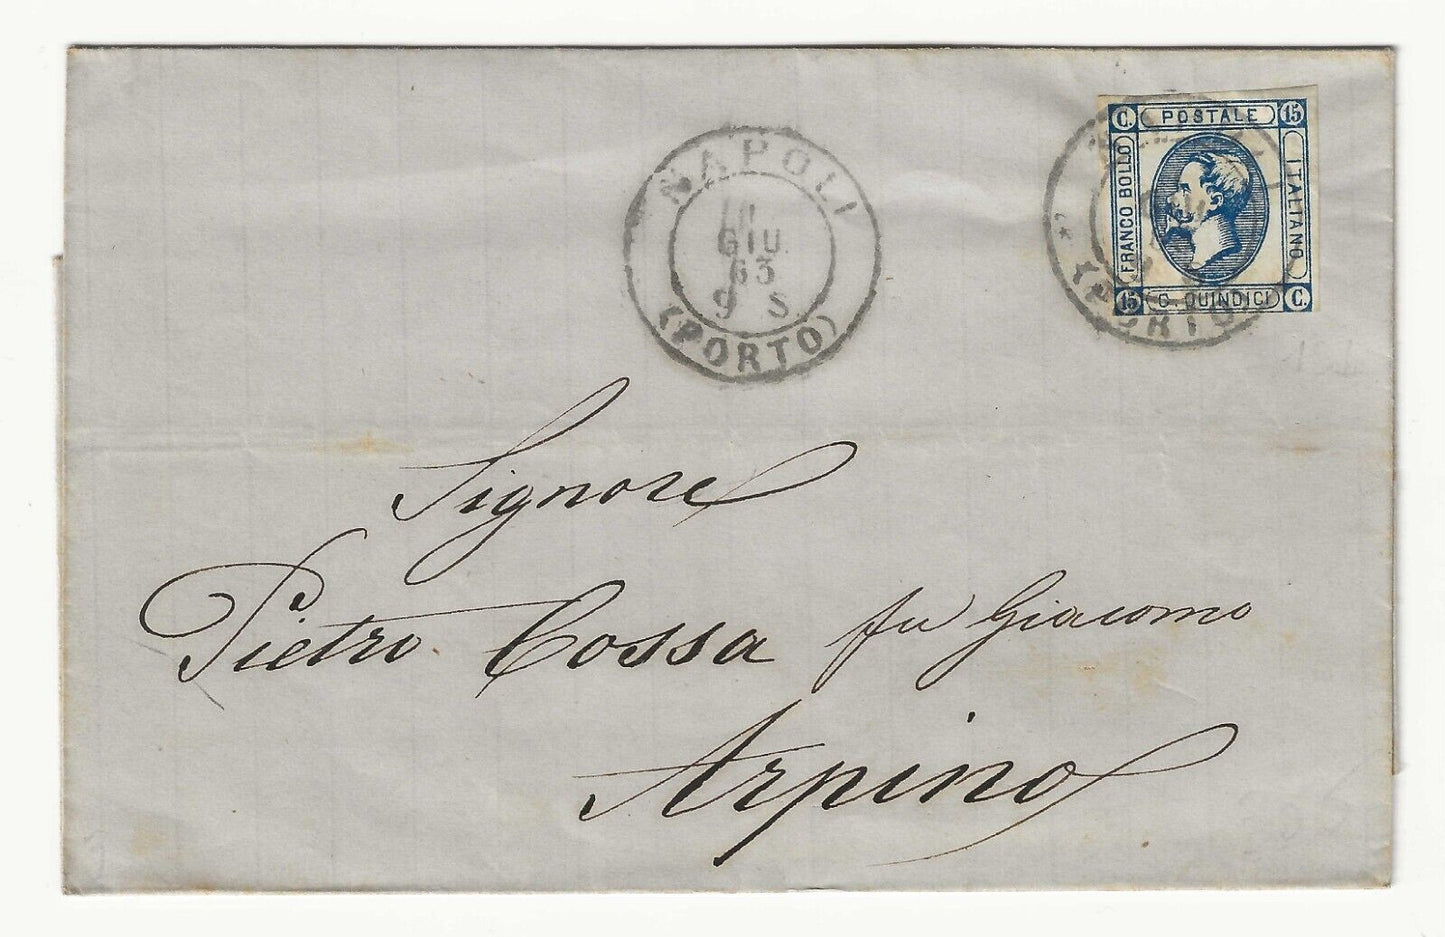 NAPOLI
GIU.
63
9 S
(PORTO)
C. POSTALE 15
FRANCO BOLLO
ITALIANO
15 C. QUINDICI C.
(PORTO)
Signore
Pietro Cossa fu Giacomo
Arpino